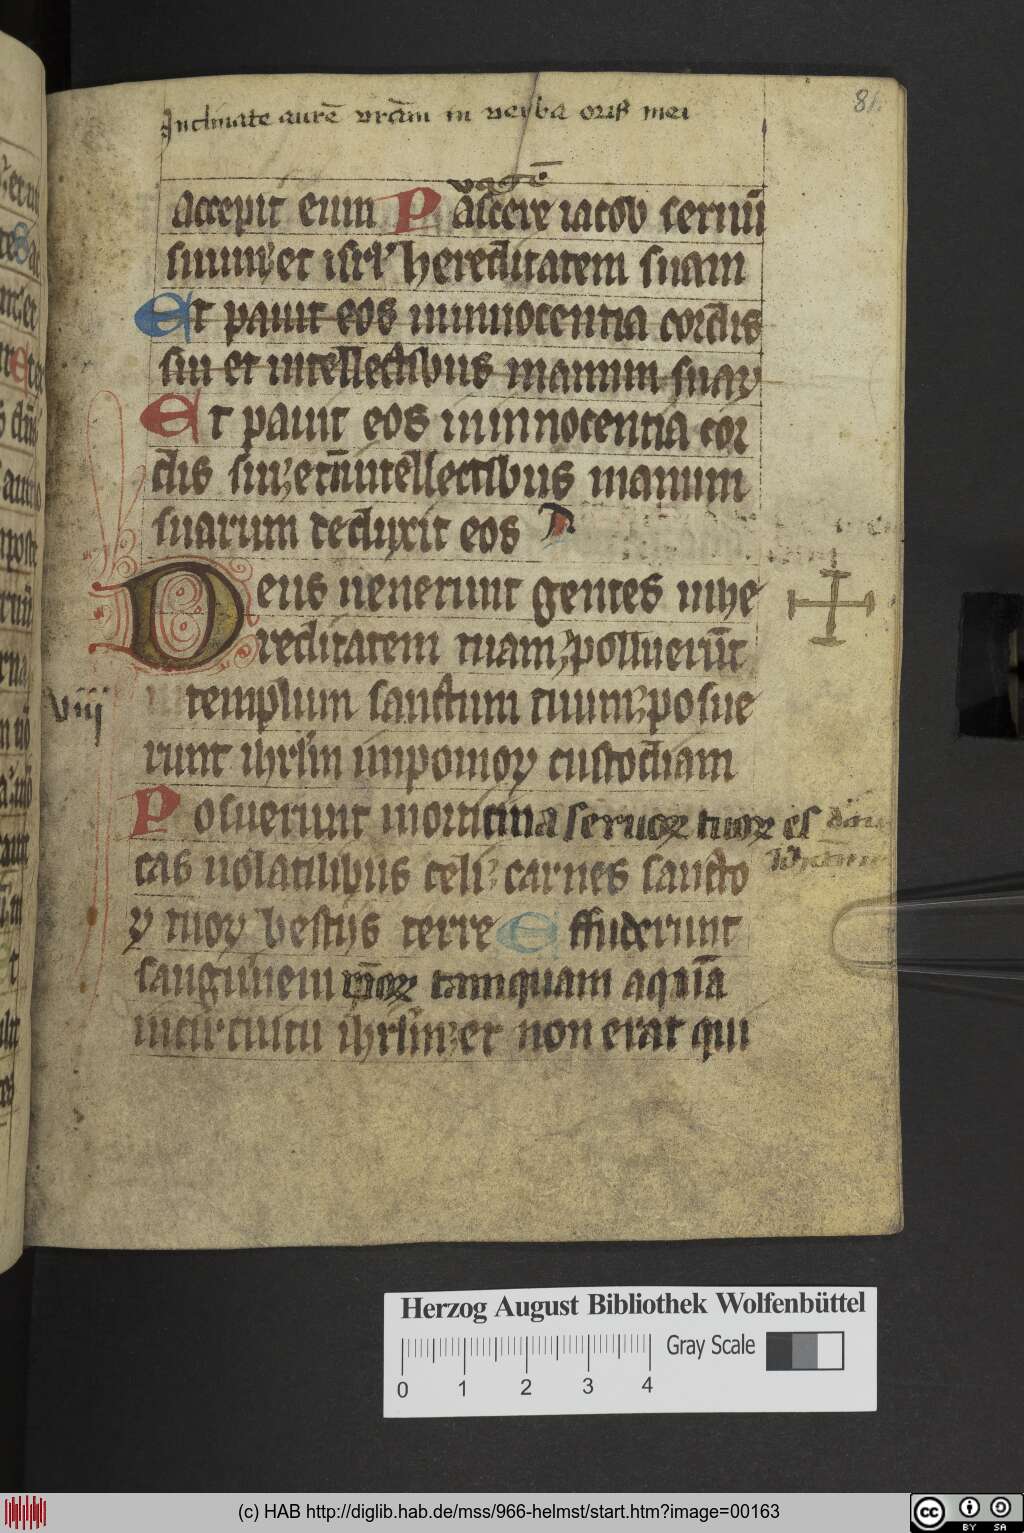 Inclinate aurē vrām in verba oris mei
81
accepit eum Pascere iacob seruū
suum et isrl hereditatem suam
Et pauit eos in innocentia cordis
sui et intellectibus manuum suaꝝ
Et pauit eos in innocentia cor
dis sui et in intellectibus manuum
suarum deduxit eos
Deus uenerunt gentes in he
reditatem tuam polluerūt
templum sanctum tuum posue
runt ihrlm in pomoꝝ custodiam
viij
Posuerunt morticina seruoꝝ tuoꝝ es
cas uolatilibus celi carnes sancto
ꝝ tuoꝝ bestijs terre Effuderunt
sanguinem tamquam aquā
in circuitu ihrlm et non erat qui
Herzog August Bibliothek Wolfenbüttel
Gray Scale
0 1 2 3 4
(c) HAB http://diglib.hab.de/mss/966-helmst/start.htm?image=00163
cc BY SA